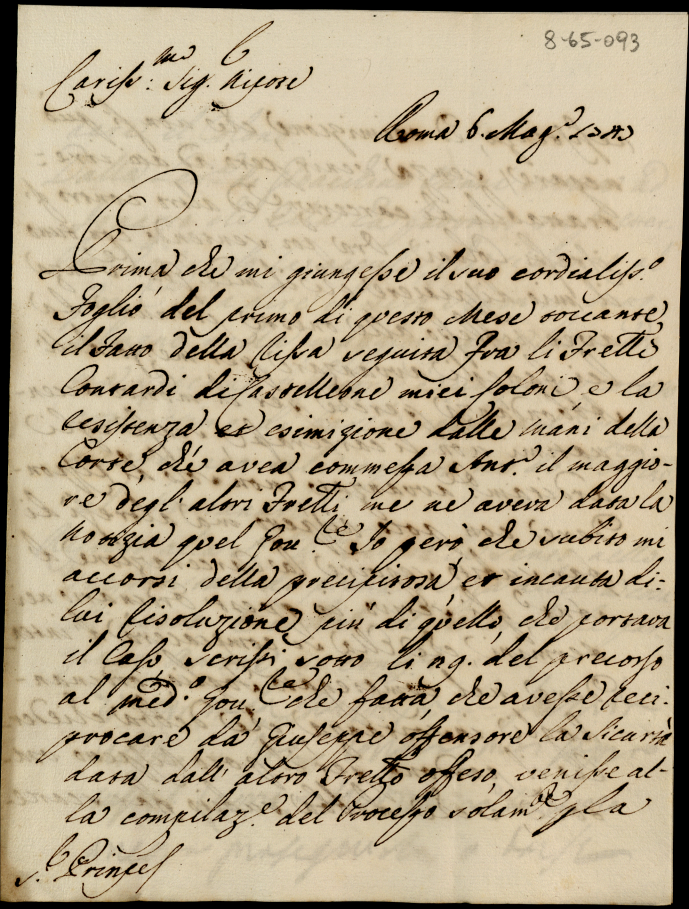 8-65-093
Cariss:mo Sig.r Nipote
Roma 6. Mag.o
Prima che mi giungesse il suo cordialiss.o
Foglio del primo di questo Mese toccante
il Fatto della Rissa seguita fra li Frelli
Contardi di Castelleone miei Coloni, e la
resistenza et esimizione dalle mani della
Corte, che avea commessa Ant.o il maggio-
re degl'altri Frelli, me ne aveva data la
notizia quel Gov.re Io però che subito mi
accorsi della precipitosa, et incauta di-
lui risoluzione più di quello, che portava
il Caso, scrissi sotto li 29. del precorso
al med.o Gov.re che fatta, che avesse reci-
procare da Giuseppe offensore la Sicurtà
data dall'altro Frello offeso, venisse al-
la compilaz.e del Processo solam.te p la